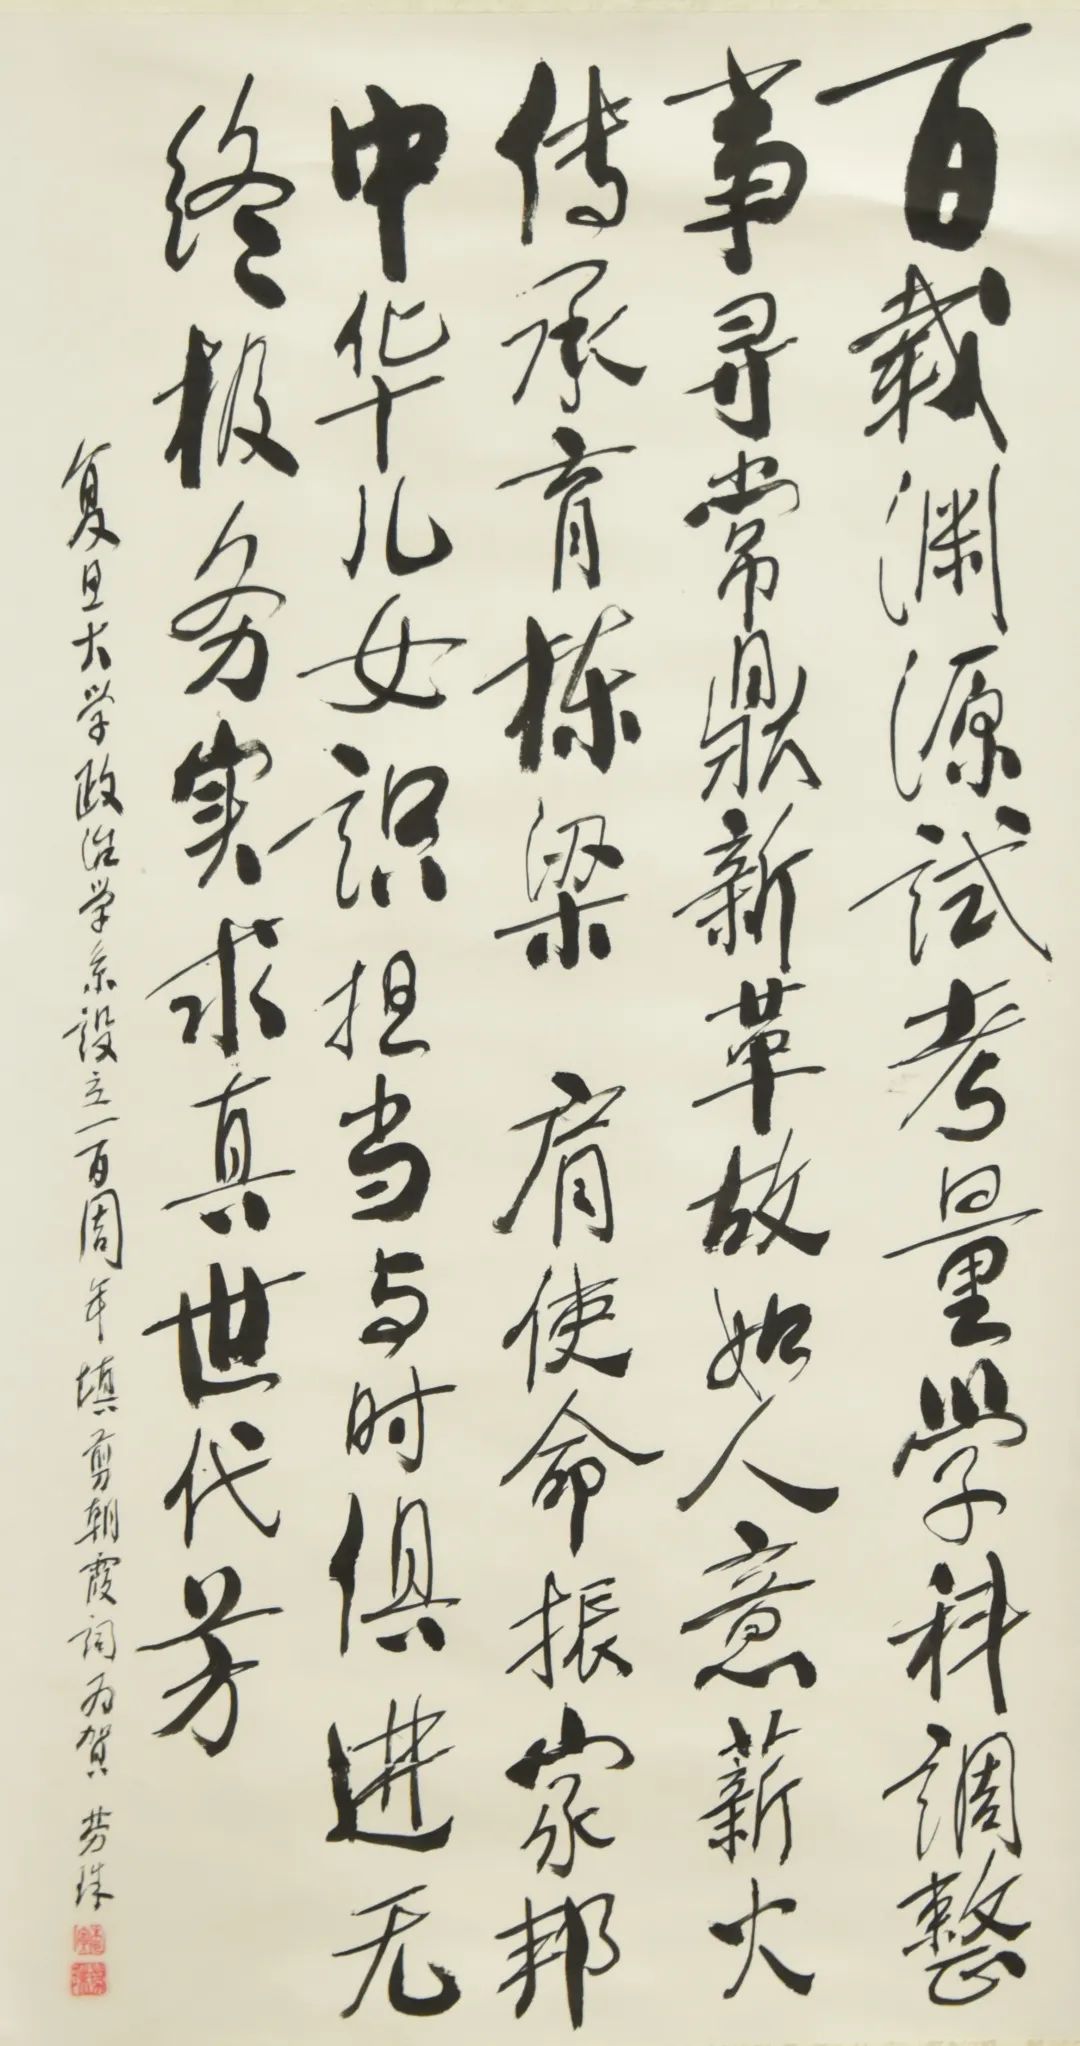 百载渊源试考量学科调整
事寻常鼎新革故如人意薪火
传承育栋梁 肩使命振家邦
中华儿女识担当与时俱进无
终极务实求真世代芳
复旦大学政治学系设立一百周年填剪朝霞词为贺 芳珠